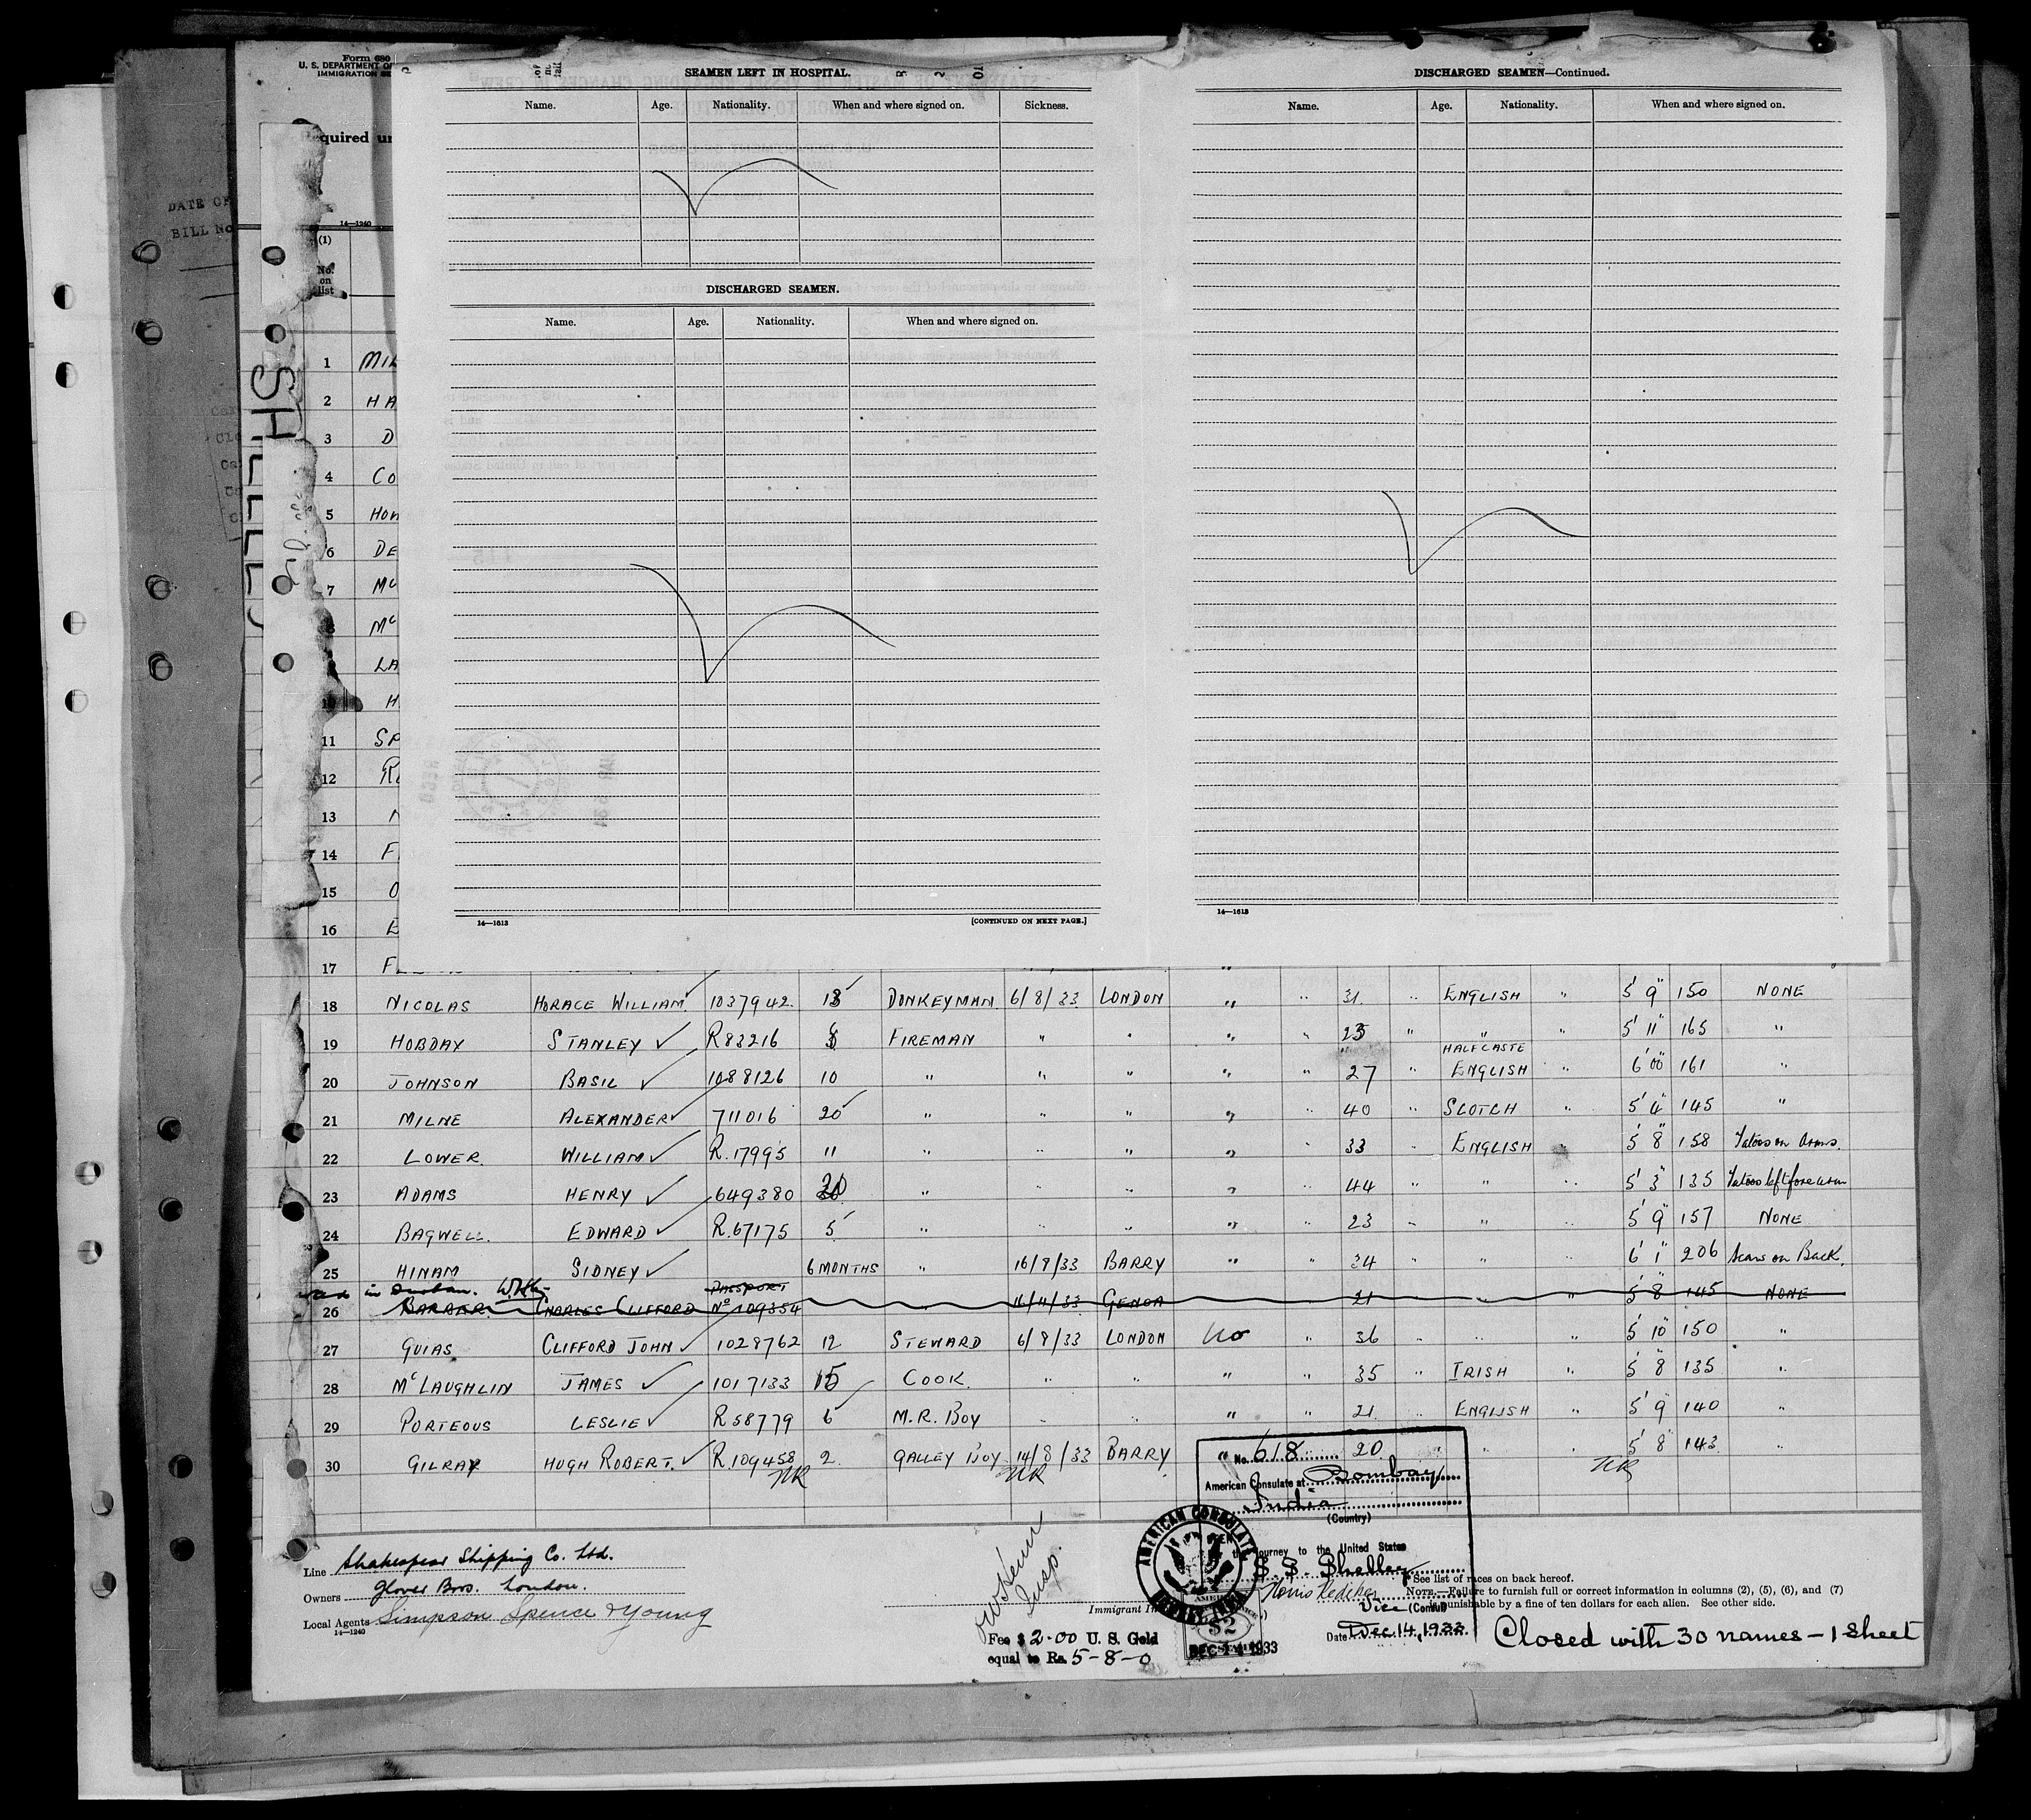 Form 680
U. S. DEPARTMENT OF
IMMIGRATION SE
equired un
DATE OF
BILL No
14—1240
(1)
No. on list
SEAMEN LEFT IN HOSPITAL.
Name. Age. Nationality. When and where signed on. Sickness.
DISCHARGED SEAMEN.
Name. Age. Nationality. When and where signed on.
14—1613 [CONTINUED ON NEXT PAGE.]
DISCHARGED SEAMEN—Continued.
Name. Age. Nationality. When and where signed on.
14—1613
SHELLEY
1 MIL
2 HA
3 D
4 CO
5 HOW
6 DE
7 Mc
8 Mc
LA
10 H
11 SP
12 R
13
14 F
15 O
16 E
17 F
18 NICOLAS HORACE WILLIAM 1037942 13 DONKEYMAN 6/8/33 LONDON " " 31 " ENGLISH " 5' 9" 150 NONE
19 HOBDAY STANLEY R83216 FIREMAN " " " " 25 " " " 5' 11" 165 "
20 JOHNSON BASIL 1088126 10 " " " " " 27 " HALFCASTE ENGLISH " 6' 00" 161 "
21 MILNE ALEXANDER 711016 20 " " " " " 40 " SCOTCH " 5' 4" 145 "
22 LOWER WILLIAM R.17995 11 " " " " " 33 " ENGLISH " 5' 8" 158 Tatoos on Arms.
23 ADAMS HENRY 649380 30 " " " " " 44 " " " 5' 3" 135 Tatoos left forearm
24 BAGWELL EDWARD R.67175 5 " " " " " 23 " " " 5' 9" 157 NONE
25 HINAM SIDNEY 6 MONTHS " 16/8/33 BARRY " " 34 " " " 6' 1" 206 Scars on Back.
in Durban.
26 BARBER CHARLES CLIFFORD PASSPORT No 109354 " 16/11/33 GENOA 21 " " 5' 8" 145 NONE
27 GUIAS CLIFFORD JOHN 1028762 12 STEWARD 6/8/33 LONDON no " 36 " " " 5' 10" 150 "
28 McLAUGHLIN JAMES 1017133 15 COOK. " " " " 35 " IRISH " 5' 8" 135 "
29 PORTEOUS LESLIE R58779 6 M.R. BOY " " " " 21 " ENGLISH " 5' 9" 140 "
30 GILRAY HUGH ROBERT. R109458 2 GALLEY BOY 14/8/33 BARRY " 20 " " " 5' 8" 143 "
NR NR NR
No. 618
American Consulate at Bombay,
India
(Country)
journey to the United States
S.S. Shelley
Vice (Consul)
Date Dec. 14, 1933
AMERICAN CONSULATE
BOMBAY INDIA
$2
DEC 14 1933
Line Shakespear Shipping Co. Ltd.
Owners Glover Bros. London.
Local Agents Simpson Spence & Young
14—1240
Insp.
Immigrant In
Fee $2.00 U. S. Gold
equal to Rs. 5-8-0
See list of races on back hereof.
NOTE.—Failure to furnish full or correct information in columns (2), (5), (6), and (7)
is punishable by a fine of ten dollars for each alien. See other side.
Closed with 30 names – 1 sheet